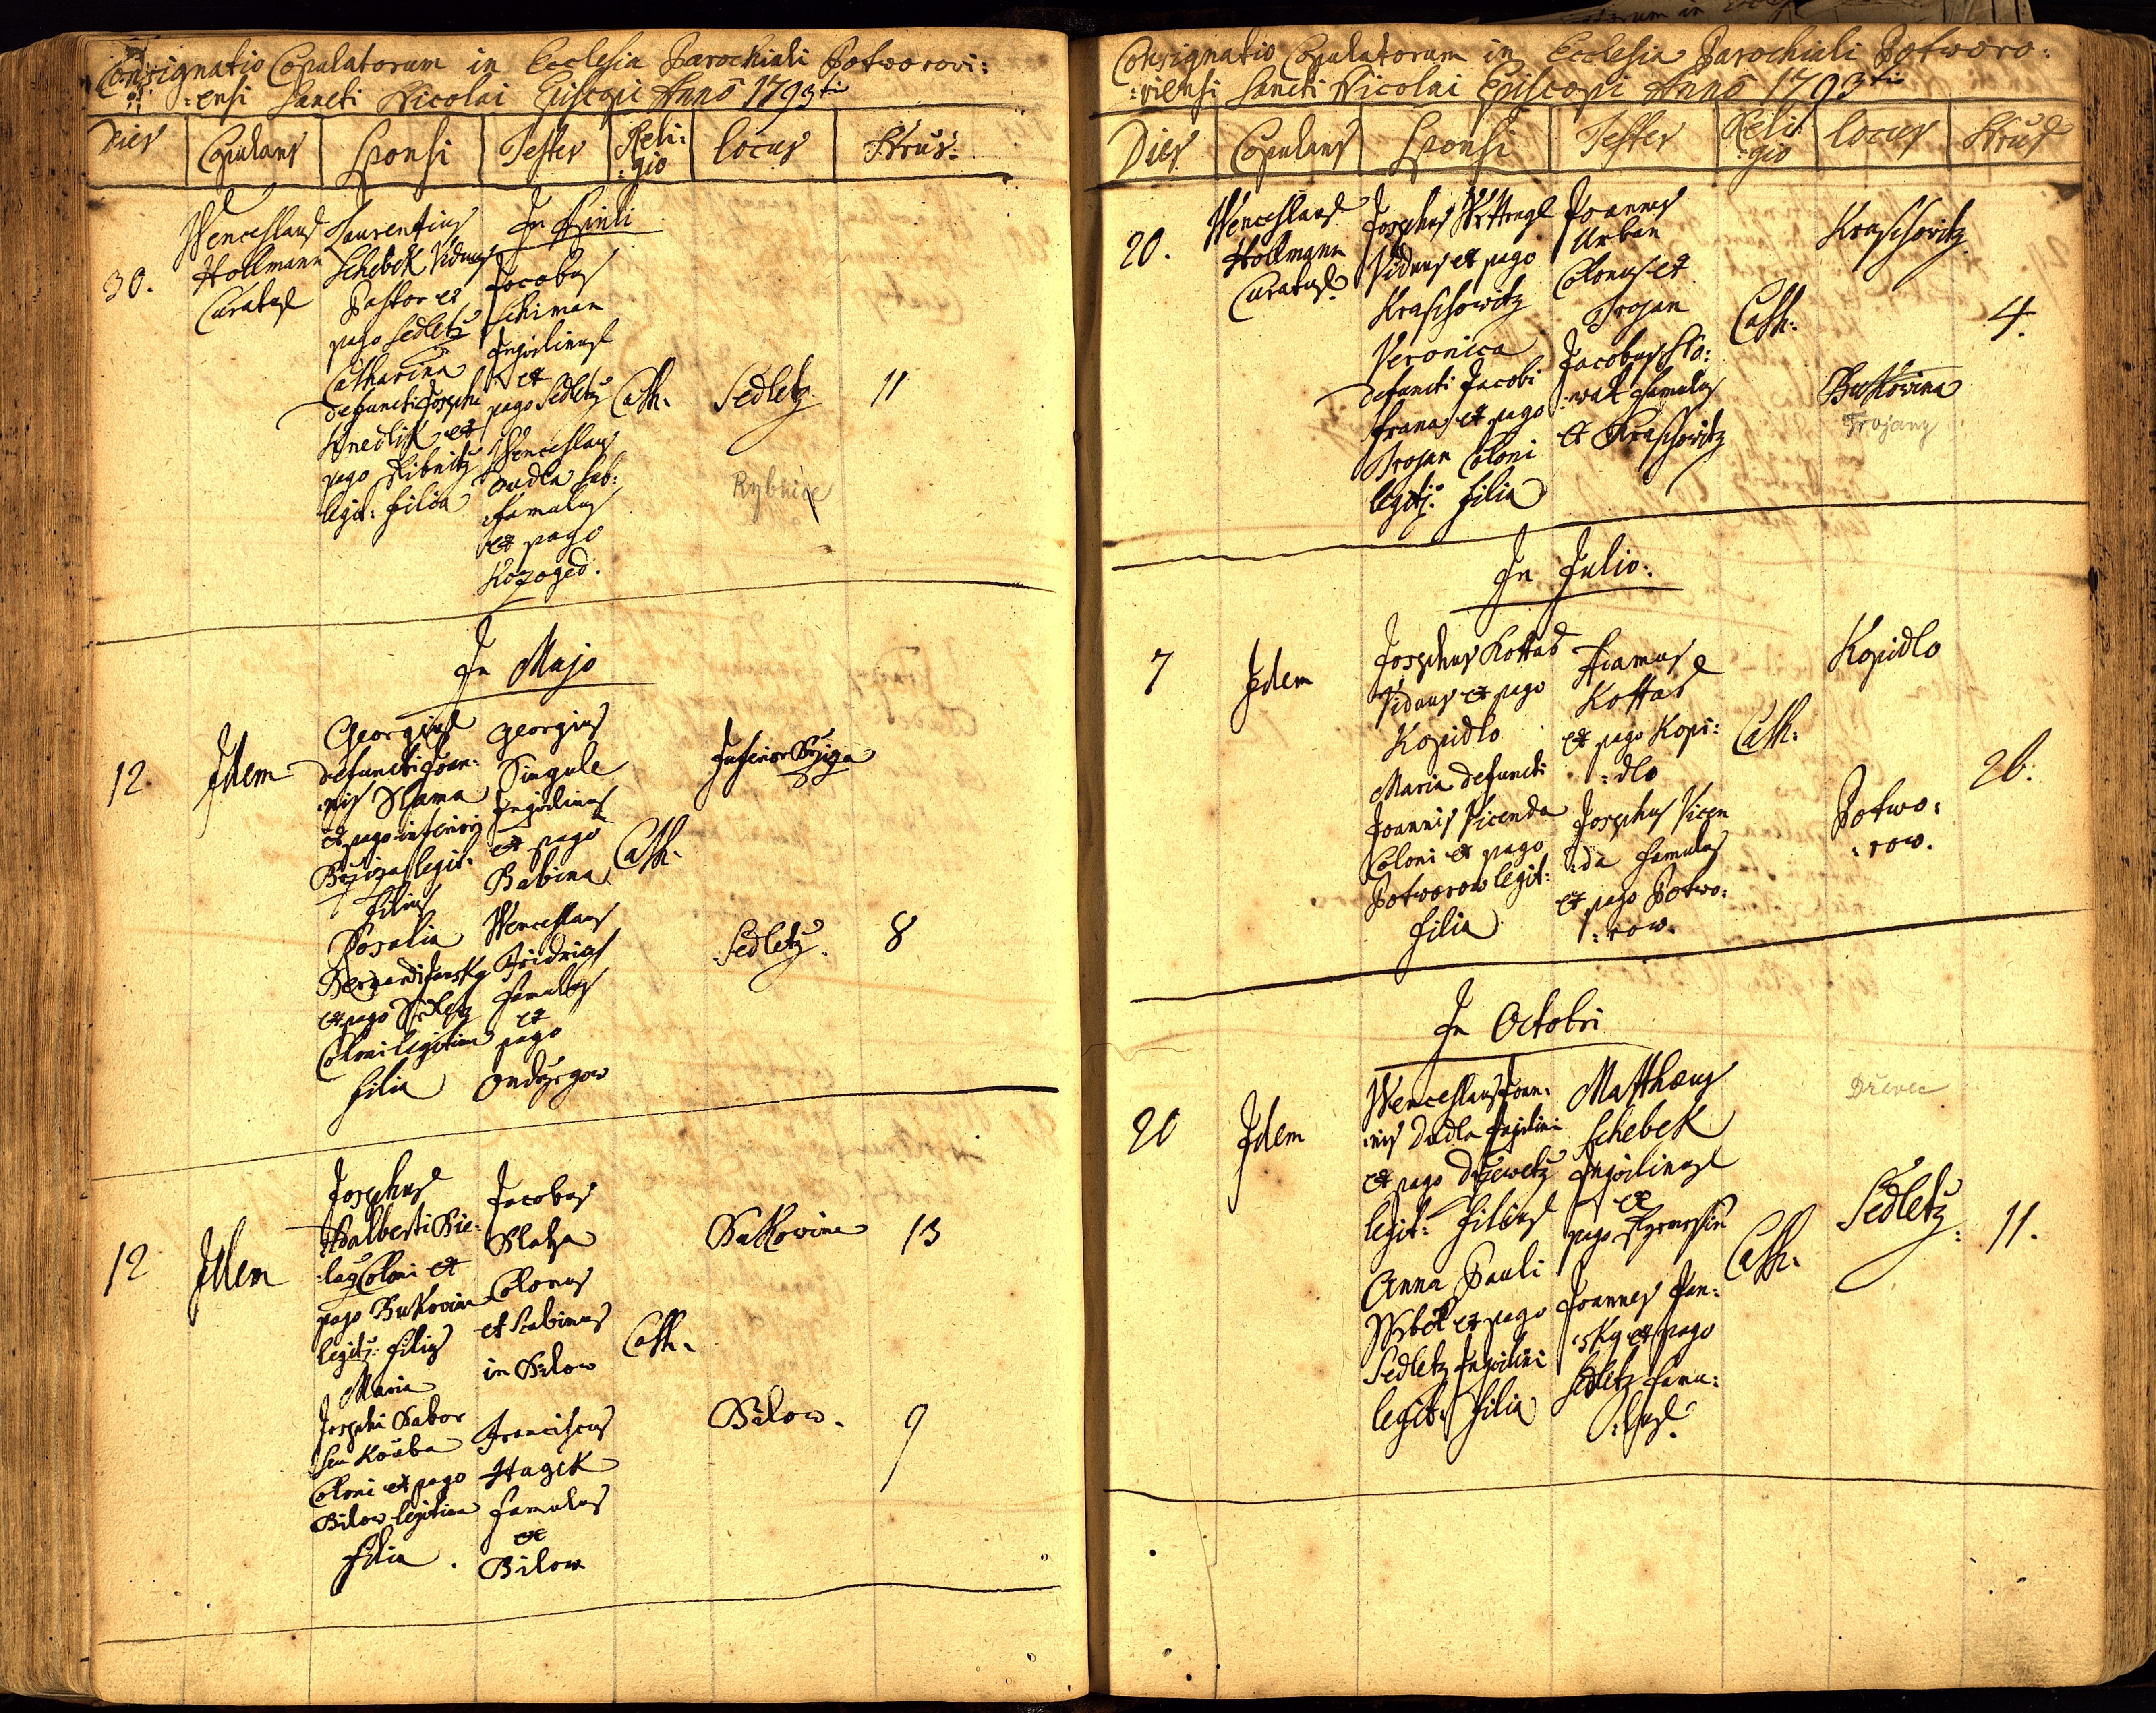 Consignatio Copulatorum in Ecclesia Parochiali Potworovi:
:ensi Sancti Nicolai Episcopi Anno 1793ti
Dies Copulans Sponsi Testes Reli: Locus Nrus.
:gio
30.
Wenceslaus
Hollmann
Curatus
Laurentius
Schebek Viduus
Pastor ex
pago Sedletz
Catharina
defuncti Josephi
Knedlik ex
pago Ribnitz
legit: filia
In
Jacobus
Schiman
Inquilinus
ex
pago Sedletz
Wenceslaus
Dudla
famulus
ex pago
Kozoged.
Cath.
Sedletz
Rybnice
11
In Majo
12
Idem
Georgius
defuncti Joan:
:nis Slama
ex pago inferiori
Bržiza legit:
filius
Rosalia
Bernardi Jansky
ex pago Sedletz
Coloni legitima
filia
Georgius
Singule
Inquilinus
ex pago
Babina
Wenceslaus
Fridrich
famulus
ex
pago
Ondrzegow
Cath.
Inferior Bržiza
Sedletz.
8
12
Idem
Josephus
Adalberti Bie:
:lay Coloni ex
pago Bukovina
legit: filius
Maria
Josephi Tabor
seu Kouba
Coloni ex pago
Bilow legitima
filia.
Jacobus
Colonus
et Scabinus
in Bilow
Franciscus
Hagek
famulus
ex
Bilow
Cath.
Bukovina
13
Bilow.
9
Consignatio Copulatorum in Ecclesia Parochiali Potworo:
:viensi Sancti Nicolai Episcopi Anno 1793tii
Dies Copulans Sponsi Testes Reli: Locus Nrus
:gio
20.
Wenceslaus
Hollmann
Curatus.
Josephus
Viduus ex pago
Kraschowitz
Veronica
defuncti Jacobi
Frana ex pago
Trojan Coloni
legit: filia
Joannes
Urban
Colonus ex
Trojan
Jacobus Slo:
:wak famulus
ex Kraschowitz
Cath:
Kraschowitz
Bukovina
Trojany
4.
In Julio:
7
Idem
Josephus Kottas
Viduus ex pago
Kopidlo
Maria defuncti
Joannis Vicenda
Coloni ex pago
Potworow legit:
filia
Thomas
Kottas
ex pago Kopi:
:dlo
Josephus Vicen
:da famulus
ex pago Potwo:
:row.
Cath:
Kopidlo
Potwo:
:row.
26.
In Octobri
20
Idem
Wenceslaus Joan:
:nis Dudla Inquilini
ex pago Drzewetz
legit: filius
Anna Pauli
ex pago
Sedletz Inquilini
legit: filia
Matthæus
Schebek
Inquilinus
ex
pago
Joannes Jan:
:sky ex pago
Sedletz famu:
:lus.
Cath:
Dřevec
Sedletz.
11.